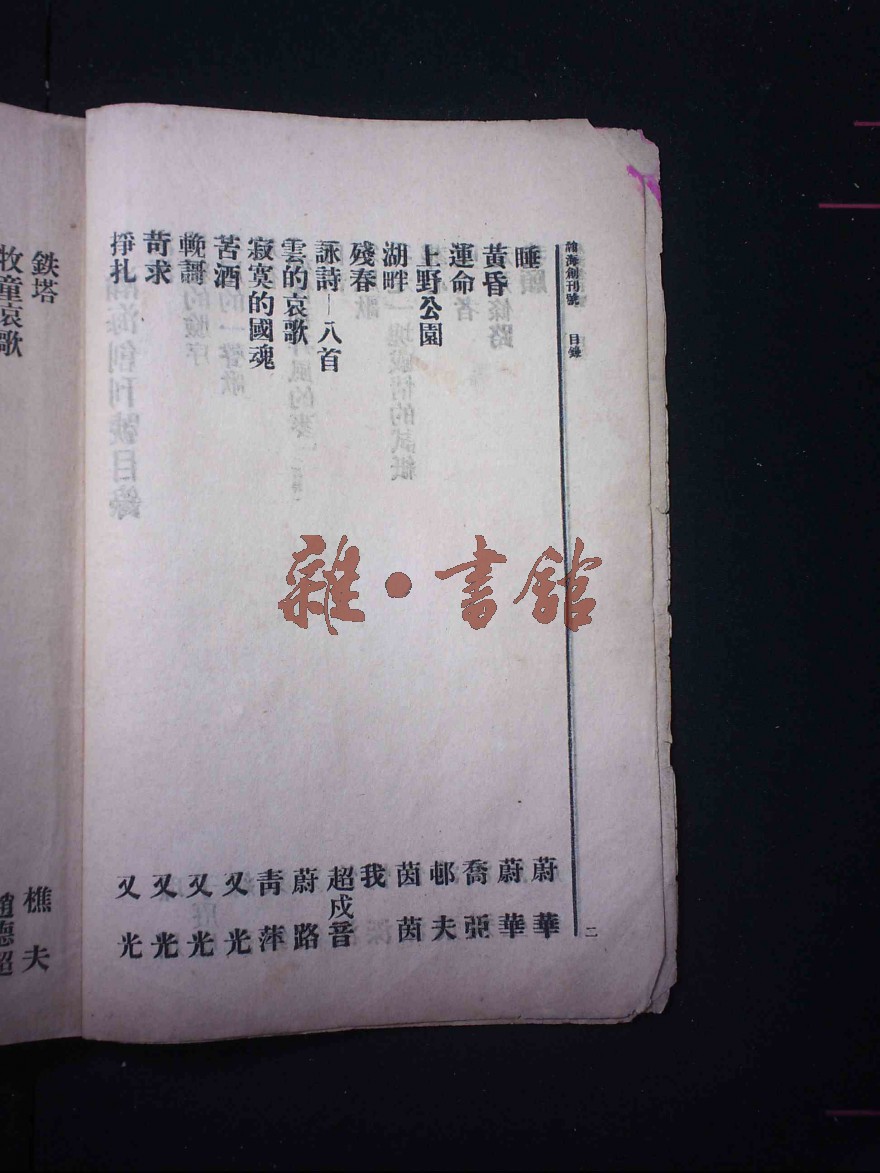 瀚海創刊號 目錄 二
睡 蔚華
黃昏 蔚華
運命 喬亞
上野公園 邨夫
湖畔 茵茵
殘春 我
詠詩—八首 超戍晉
雲的哀歌 蔚路
寂寞的國魂 青萍
苦酒 又光
輓謌 又光
苛求 又光
掙扎 又光
鉄塔 樵夫
牧童哀歌 趙德超
雜·書館